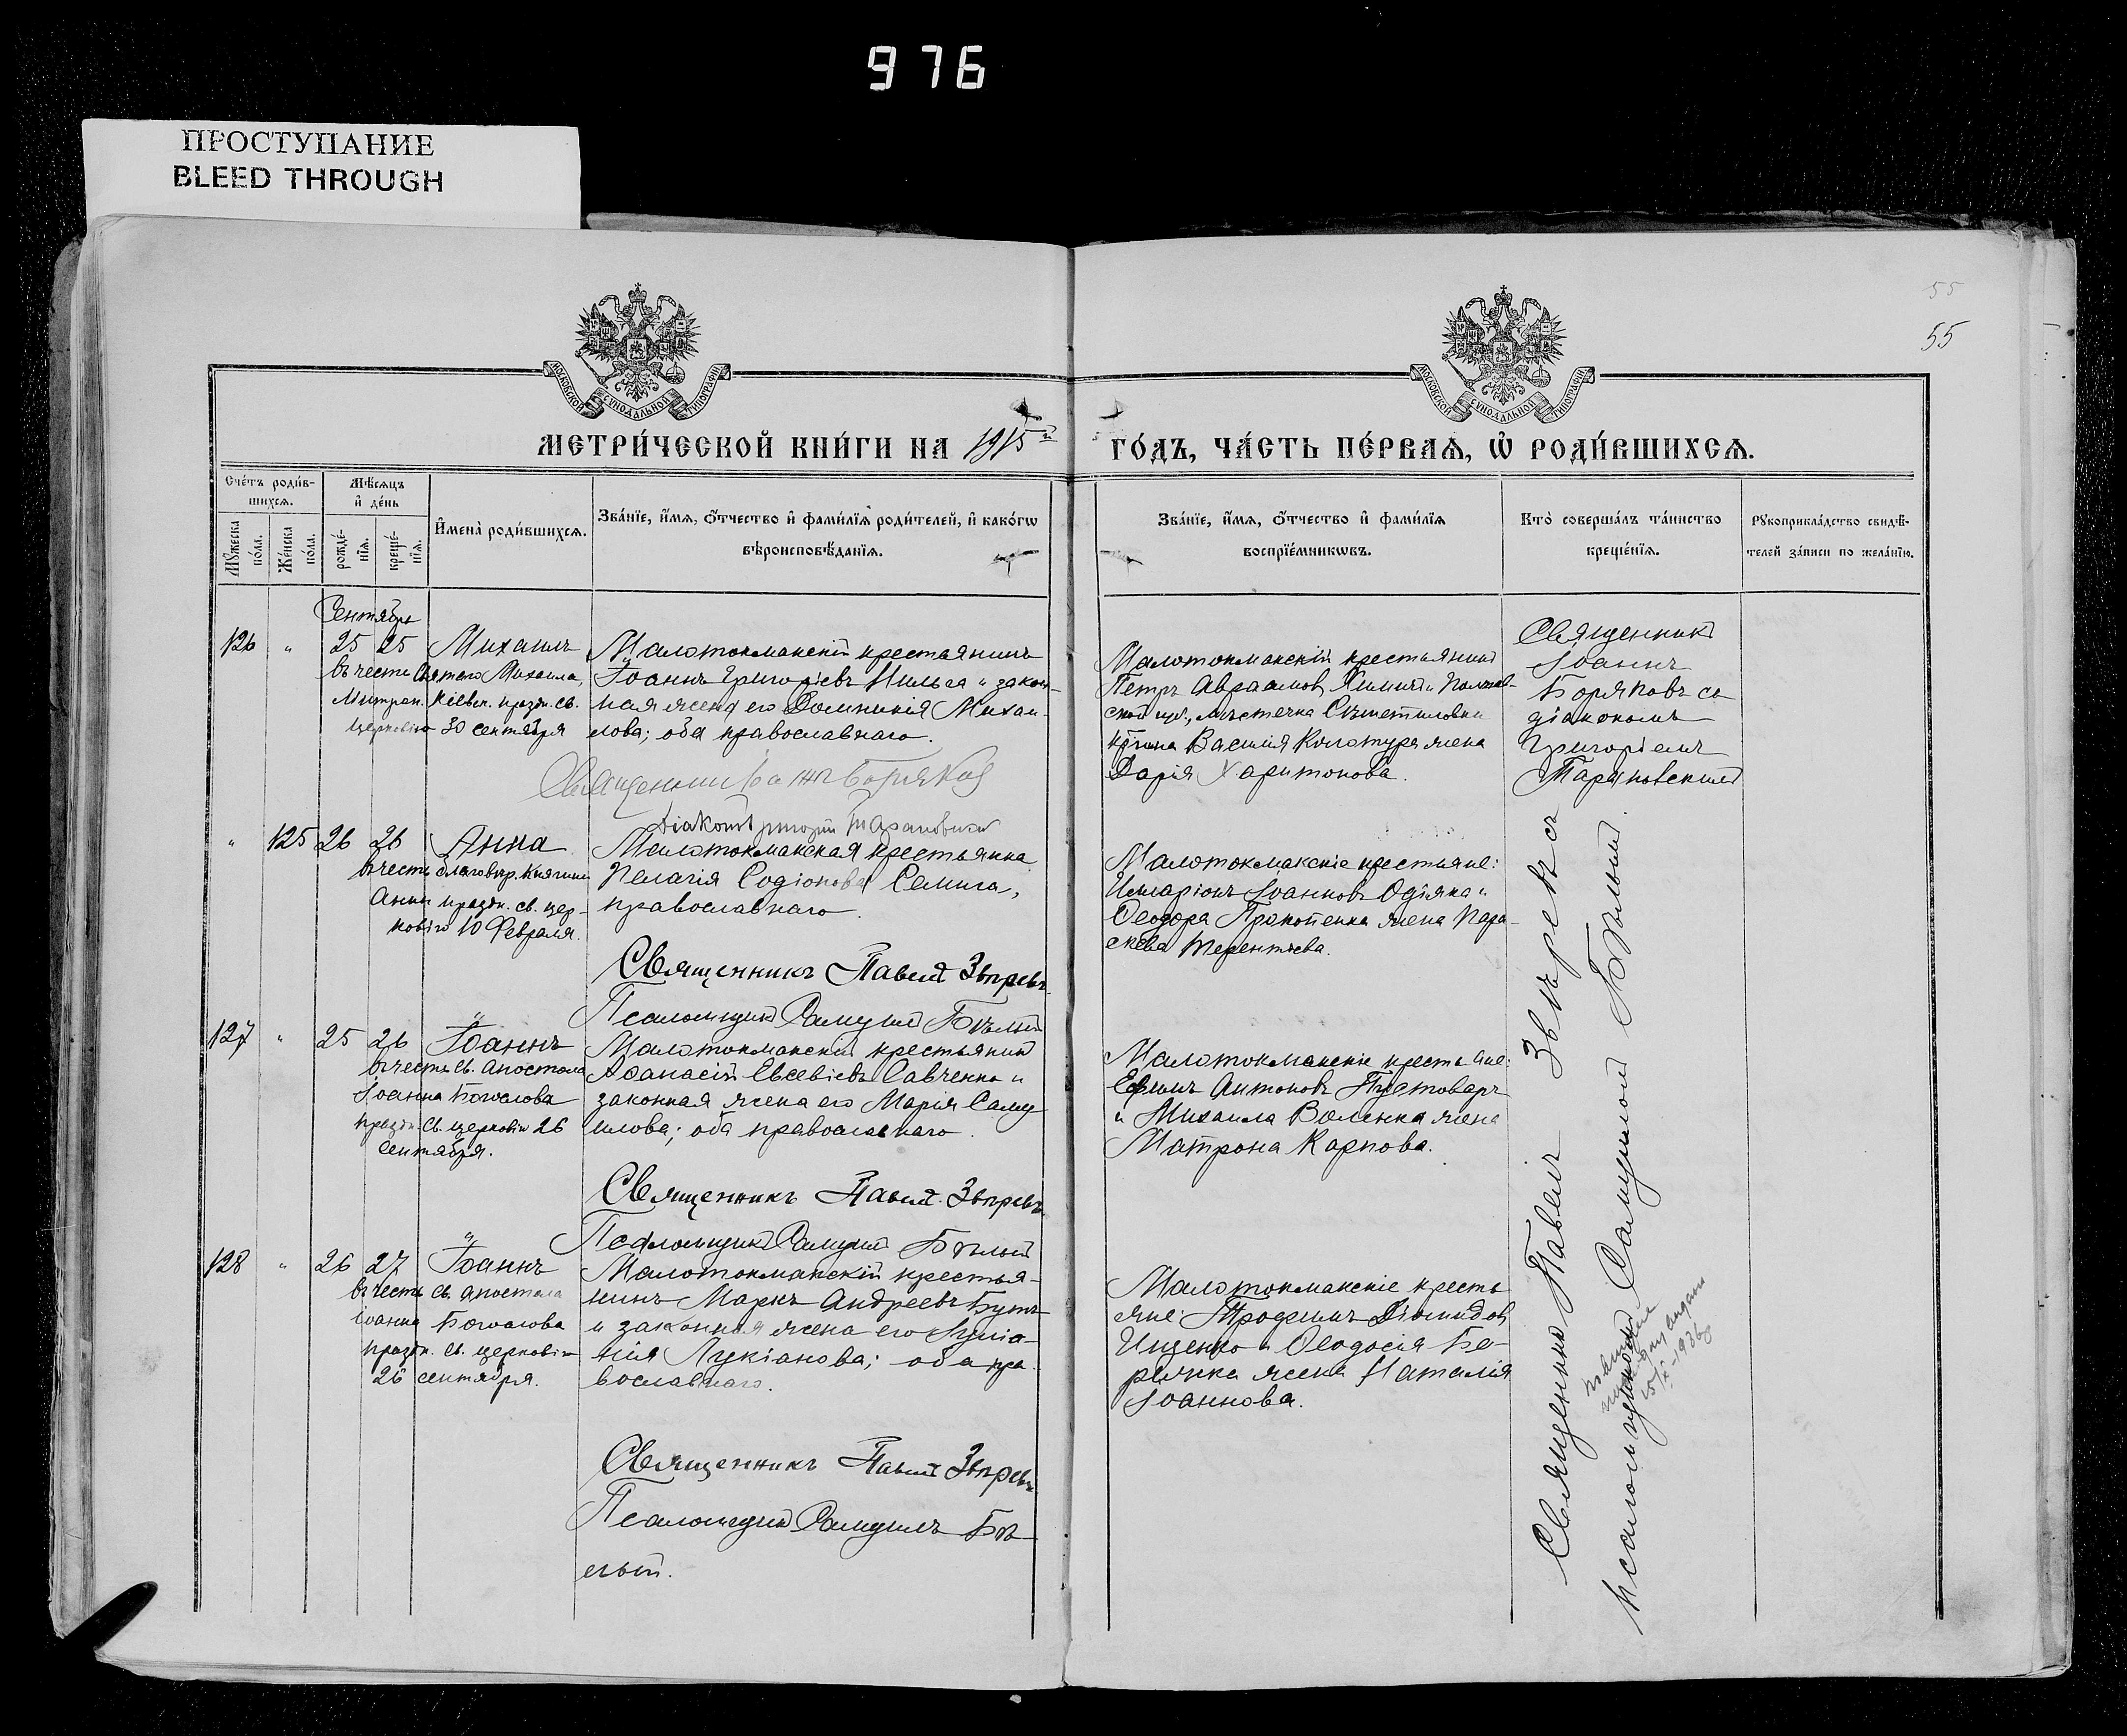 976
ПРОСТУПАНИЕ
BLEED THROUGH
55
55
МОСКОВСКОЙ СУНОДАЛЬНОЙ ТИПОГРАФІИ
МОСКОВСКОЙ СУНОДАЛЬНОЙ ТИПОГРАФІИ
МЕТРИ́ЧЕСКОЙ КНИ́ГИ НА 1915й ГО́ДЪ, ЧА́СТЬ ПЕ́РВАѦ, Ѡ҆ РОДИ́ВШИХСѦ.
Сче́тъ роди́в-
шихсѧ.
Мѣ́сѧцъ
и҆ де́нь
Мꙋ́жеска
по́ла.
Же́нска
по́ла.
рожде́-
нїѧ.
креще́-
нїѧ.
И҆мена̀ роди́вшихсѧ.
Зва́нїе, и҆́мѧ, ѻ҆́тчество и҆ фами́лїѧ роди́телей, и҆ како́гѡ
вѣроисповѣ́данїѧ.
Зва́нїе, и҆́мѧ, ѻ҆́тчество и҆ фами́лїѧ
воспрїе́мникѡвъ.
Кто̀ соверша́лъ та́инство
креще́нїѧ.
Рꙋкоприкла́дство свидѣ́-
телей за́писи по жела́нїю.
Сентябрь
126 " 25 25 Михаилъ
въ честь Святого Михаила,
Митроп. Кіевск. праздн. св.
церковію 30 сентября
Малотокмакскій крестьянинъ
Іоаннъ Григоріевъ и закон-
ная жена его Домникія Михаи-
лова; оба православнаго.
Священникъ Іоаннъ Боряковъ
Діаконъ Григорій Тарановскій
Малотокмакскій крестьянинъ
Петръ Авраамовъ и Полтав-
ской губ., мѣстечка
Василія жена
Дарія Харитонова.
Священникъ
Іоаннъ
Боряковъ съ
діакономъ
Григоріемъ
Тарановскимъ
" 125 26 26 Анна
въ честь благовѣр. Княгини
Анны праздн. св. цер-
ковію 10 Февраля.
Малотокмакская крестьянка
Пелагія Родіонова
православнаго.
Священникъ Павелъ Звѣревъ
Псаломщикъ Самуилъ Бѣлый
Малотокмакскіе крестьяне:
Илларіонъ Іоанновъ и
Ѳеодора Прокопенка жена Пара-
скева Терентьева.
127 " 25 26 Іоаннъ
въ честь Св. Апостола
Іоанна Богослова
праздн. Св. церковію 26
сентября.
Малотокмакскій крестьянинъ
Аѳанасій Евсевіевъ Савченко и
законная жена его Марія Саму-
илова; оба православнаго.
Священникъ Павелъ Звѣревъ
Псаломщикъ Самуилъ Бѣлый
Малотокмакскіе крестьяне:
Ефимъ Антоновъ Пустоваръ
и Михаила Воленка жена
Матрона Карпова.
128 " 26 27 Іоаннъ
въ честь Св. апостола
Іоанна Богослова
праздн. св. церковію
26 сентября.
Малотокмакскій крестья-
нинъ Маркъ Андреевъ Бутъ
и законная жена его Іуліа-
нія Лукіанова; оба пра-
вославнаго.
Священникъ Павелъ Звѣревъ
Псаломщикъ Самуилъ Бѣ-
лый.
Малотокмакскіе кресть
яне: Трофимъ Діомидовъ
Ищенко и Ѳеодосія
жена Наталія
Іоаннова.
Священникъ Павелъ Звѣревъ съ
псаломщикомъ Самуиломъ Бѣлымъ.